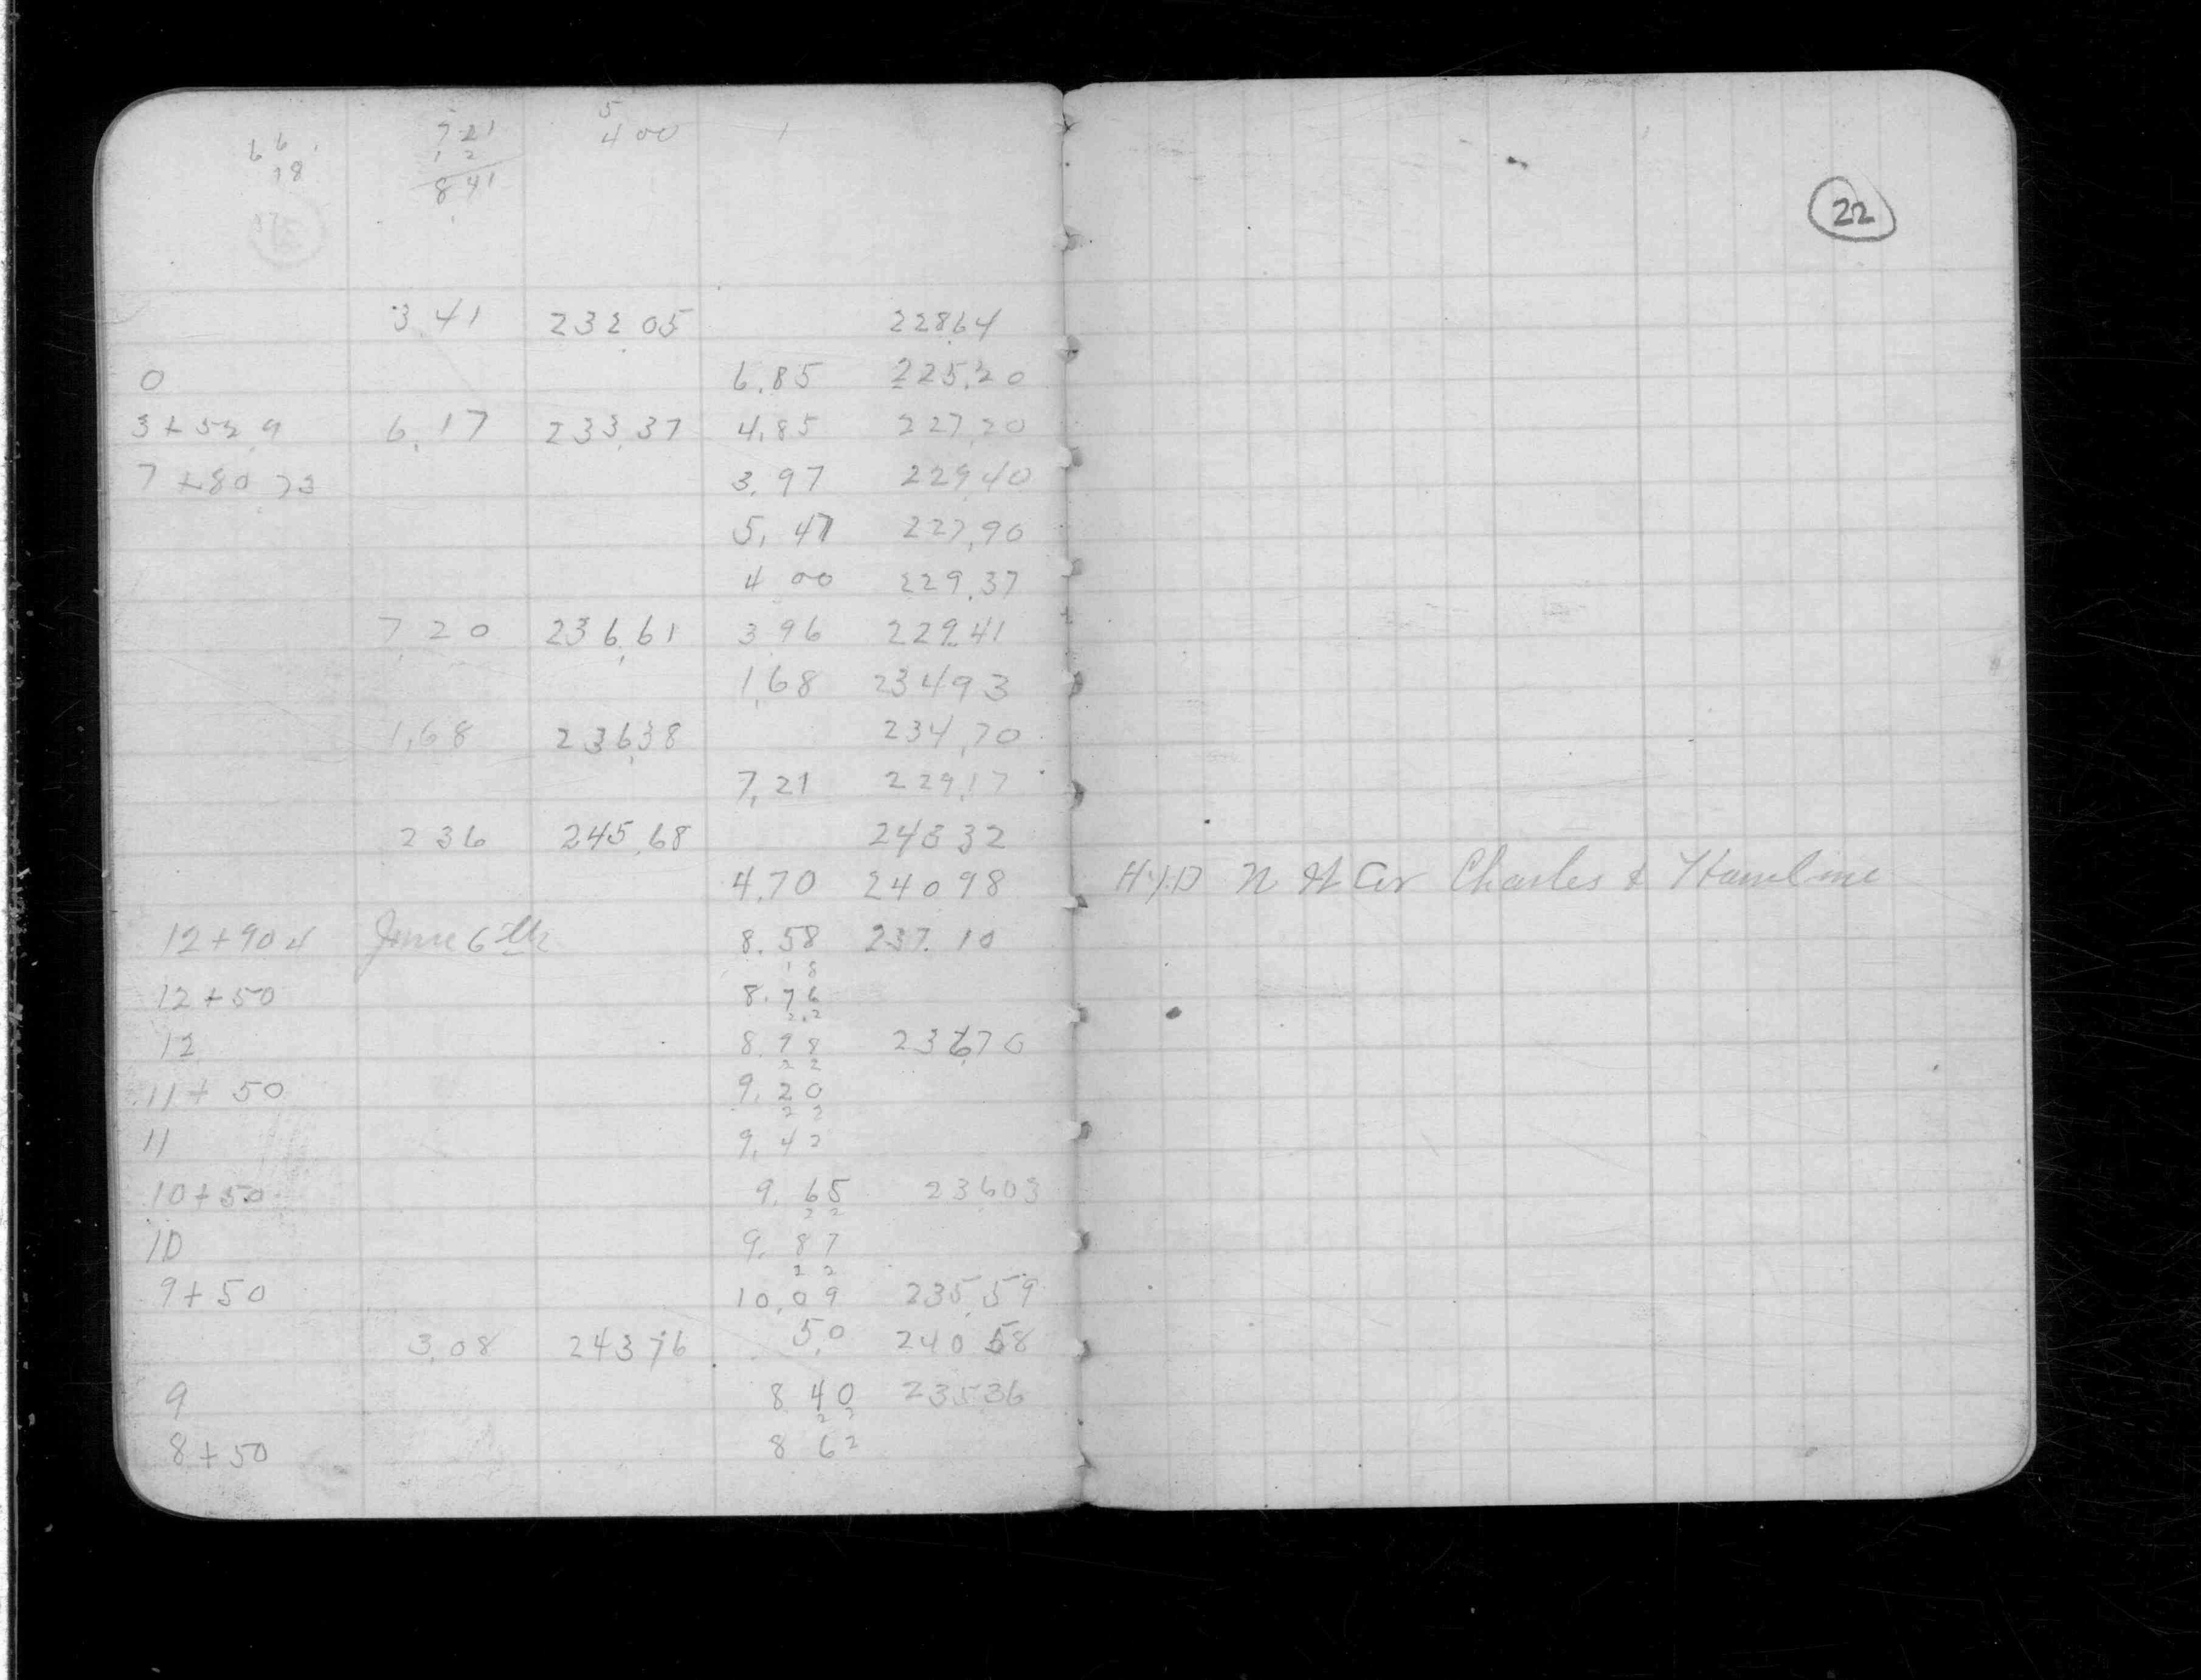 6 6
18
7 21
1 2
8 41
5
4 00
22
3.41 232.05 228.64
0 6.85 225.20
3+52.9 6.17 233.37 4.85 227.20
7+80.73 3.97 229.40
5.47 227.90
4.00 229.37
7.20 236.61 3.96 229.41
1.68 234.93
1.68 236.38 234.70
7.21 229.17
2 36 245.68 243 32
4.70 240 98 HYD N W Cor Charles & Hamline
12+90 4 June 6th 8.58 237.10
18
12+50 8.76
22
12 8.98 236.70
22
11+50 9.20
22
11 9.42
10+50 9.65 236.03
22
10 9.87
22
9+50 10.09 235.59
3.08 243 76 5.0 240 58
9 8 40 235 36
22
8+50 8 62